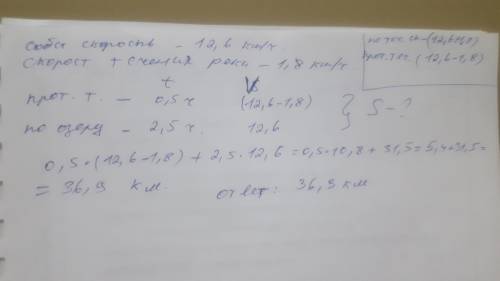 собы скорость - 12,6 км/ч
скорост течения реки - 1,8 км/ч
по теч. ск-(12,6+1,8)
прот. теч. (12,6-1,8)
t V
прот. т. - 0,5 ч (12,6-1,8) } S-?
по озеру - 2,5 ч. 12,6
0,5*(12,6-1,8) + 2,5*12,6=0,5*10,8+31,5=5,4+31,5=
= 36,9 км.
ответ: 36,9 км